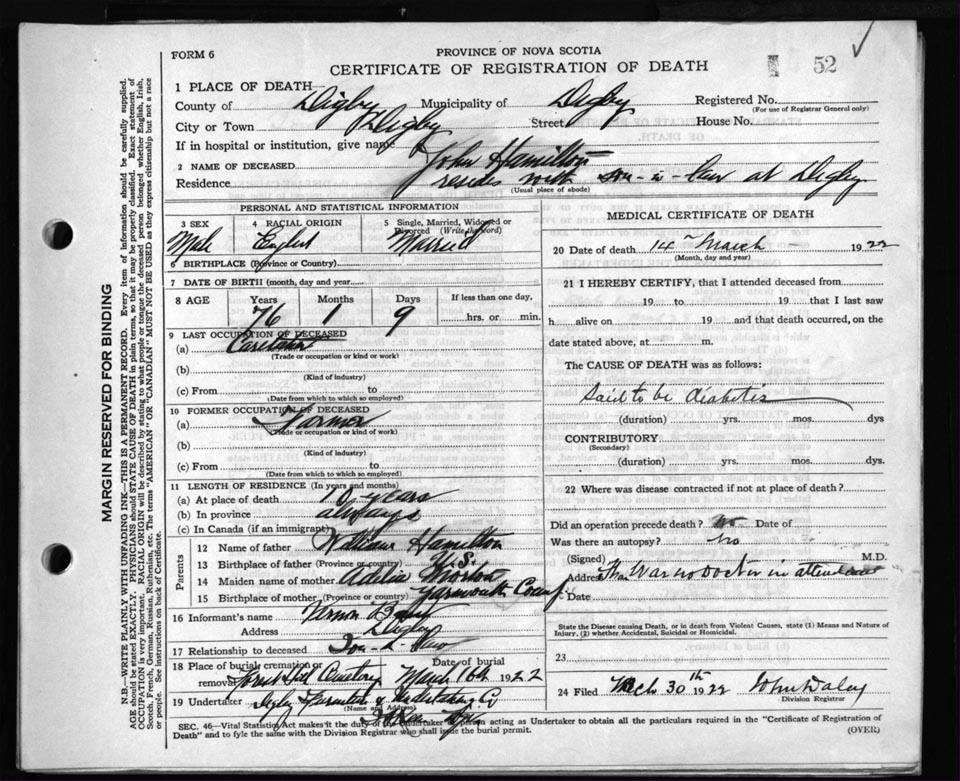 FORM 6
PROVINCE OF NOVA SCOTIA
CERTIFICATE OF REGISTRATION OF DEATH
52
1 PLACE OF DEATH
County of Digby Municipality of Digby Registered No.
(For use of Registrar General only)
City or Town Digby Street House No.
If in hospital or institution, give name
2 NAME OF DECEASED John Hamilton
Residence resides with son-in-law at Digby
(Usual place of abode)
PERSONAL AND STATISTICAL INFORMATION
3 SEX 4 RACIAL ORIGIN 5 Single, Married, Widowed or Divorced (Write the word)
Male English Married
6 BIRTHPLACE (Province or Country)
7 DATE OF BIRTH (month, day and year)
8 AGE Years Months Days If less than one day,
76 1 9 hrs. or min.
9 LAST OCCUPATION OF DECEASED
(a) Caretaker
(Trade or occupation or kind or work)
(b)
(Kind of industry)
(c) From to
(Date from which to which so employed)
10 FORMER OCCUPATION OF DECEASED
(a) Farmer
(Trade or occupation or kind of work)
(b)
(Kind of industry)
(c) From to
(Date from which to which so employed)
11 LENGTH OF RESIDENCE (In years and months)
(a) At place of death years
(b) In province always
(c) In Canada (if an immigrant)
Parents
12 Name of father William Hamilton
13 Birthplace of father (Province or country) N.S.
14 Maiden name of mother Morton
15 Birthplace of mother (Province or country) Yarmouth County
16 Informant's name Vernon
Address Digby
17 Relationship to deceased Son-in-law
18 Place of burial, cremation or removal Forest Hill Cemetery Date of burial March 16th 1922
19 Undertaker Digby Furniture & Undertaking Co
(Name and Address)
MEDICAL CERTIFICATE OF DEATH
20 Date of death 14th March 1922
(Month, day and year)
21 I HEREBY CERTIFY, that I attended deceased from
19 to 19 that I last saw
h alive on 19 and that death occurred, on the
date stated above, at m.
The CAUSE OF DEATH was as follows:
Said to be diabetis
(duration) yrs. mos. dys
CONTRIBUTORY
(Secondary)
(duration) yrs. mos. dys.
22 Where was disease contracted if not at place of death?
Did an operation precede death? No Date of
Was there an autopsy? No
(Signed) M.D.
Address Ther War no Doctor in attendance
Date
State the Disease causing Death, or in death from Violent Causes, state (1) Means and Nature of Injury, (2) whether Accidental, Suicidal or Homicidal.
23
24 Filed Mch 30th 1922 John Daley
Division Registrar
SEC. 46—Vital Statistics Act makes it the duty of the Undertaker or person acting as Undertaker to obtain all the particulars required in the "Certificate of Registration of
Death" and to fyle the same with the Division Registrar who shall issue the burial permit.
(OVER)
MARGIN RESERVED FOR BINDING
N.B.—WRITE PLAINLY WITH UNFADING INK—THIS IS A PERMANENT RECORD. Every item of information should be carefully supplied.
AGE should be stated EXACTLY. PHYSICIANS should STATE CAUSE OF DEATH in plain terms, so that it may be properly classified. Exact statement of
OCCUPATION is very important. RACIAL ORIGIN will be described by stating to what people or tongue the deceased person belonged whether English, Irish,
Scotch, French, German, Russian, Ruthenian, etc. The terms "AMERICAN" OR "CANADIAN" MUST NOT BE USED as they express citizenship but not a race
or people. See instructions on back of Certificate.